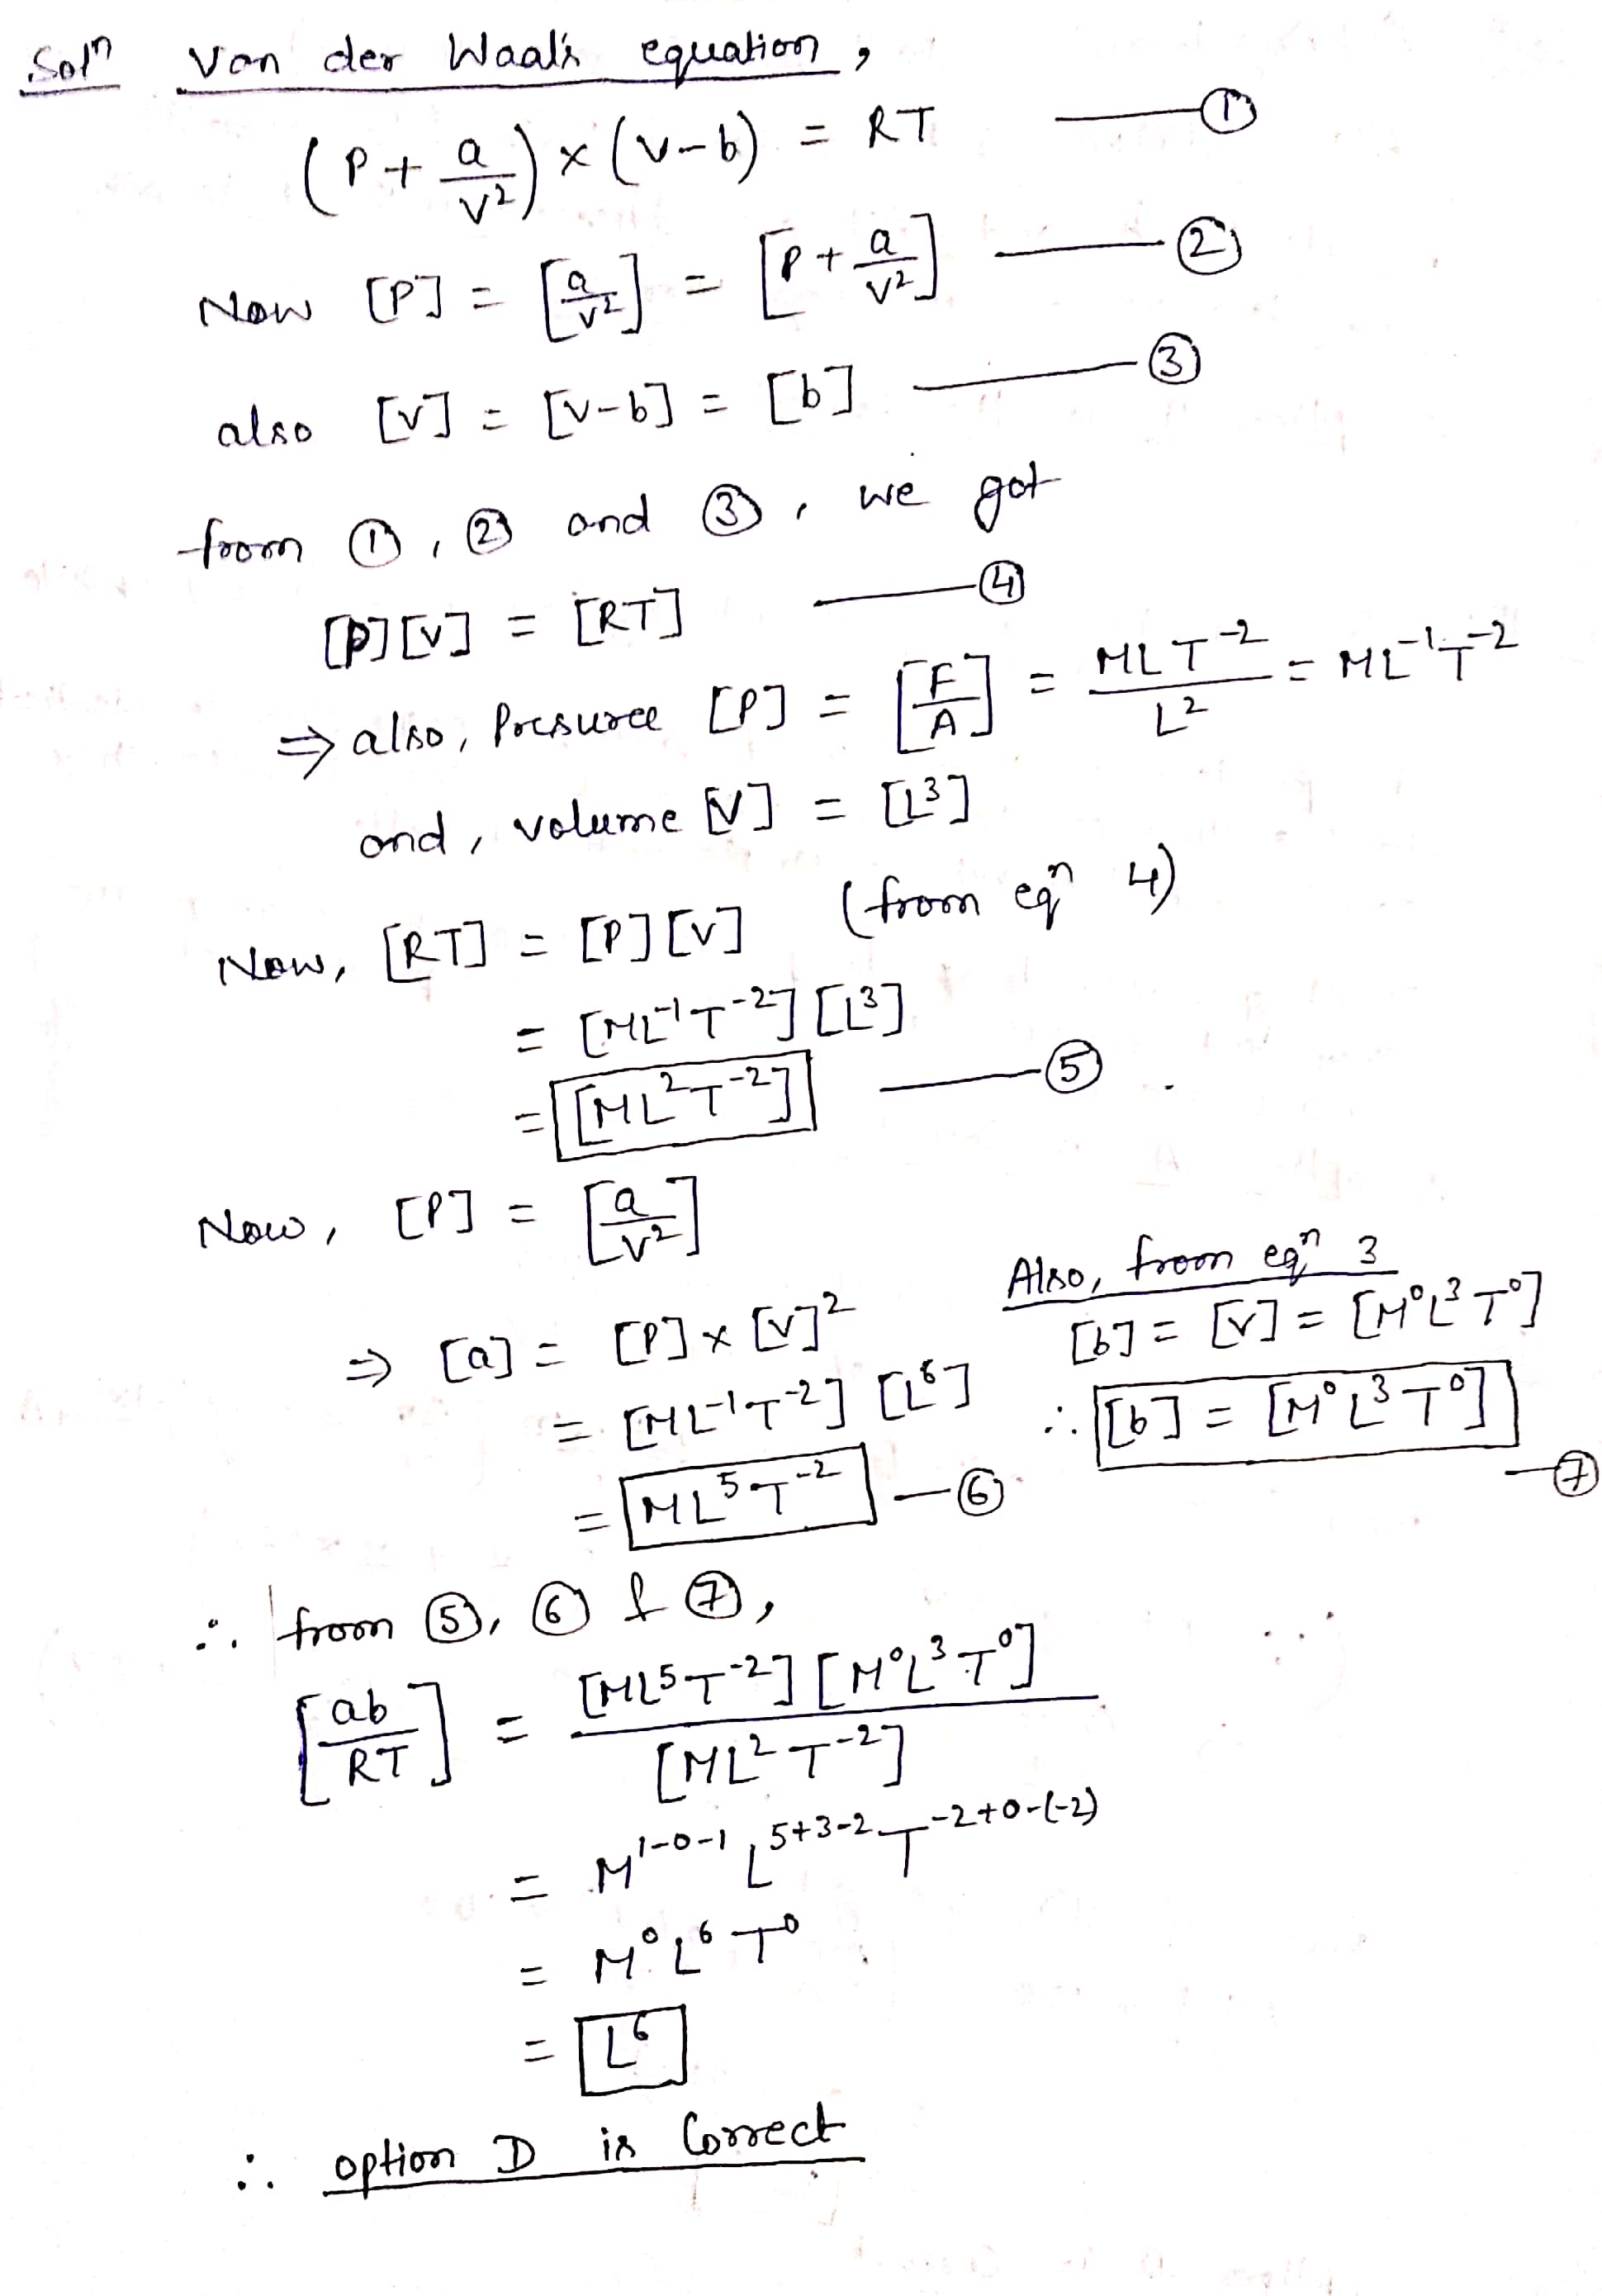 Solⁿ Van der Waal's equation,
(P + a/V²) × (V-b) = RT —— ①
Now [P] = [a/V²] = [P + a/V²] —— ②
also [V] = [V-b] = [b] —— ③
from ①, ② and ③, we got
[P][V] = [RT] —— ④
⇒ also, Pressuree [P] = [F/A] = MLT⁻²/L² = ML⁻¹T⁻²
and, volume [V] = [L³]
Now, [RT] = [P][V] (from eqⁿ 4)
= [ML⁻¹T⁻²][L³]
= [ML²T⁻²] —— ⑤
Now, [P] = [a/V²]
⇒ [a] = [P] × [V]²
= [ML⁻¹T⁻²] [L⁶]
= ML⁵T⁻² — ⑥
Also, from eqⁿ 3
[b] = [V] = [M⁰L³T⁰]
∴ [b] = [M⁰L³T⁰] — ⑦
∴ from ⑤, ⑥ & ⑦,
[ab/RT] = [ML⁵T⁻²][M⁰L³T⁰]/[ML²T⁻²]
= M¹⁻⁰⁻¹ L⁵⁺³⁻² T⁻²⁺⁰⁻⁽⁻²⁾
= M⁰L⁶T⁰
= L⁶
∴ option D is Correct